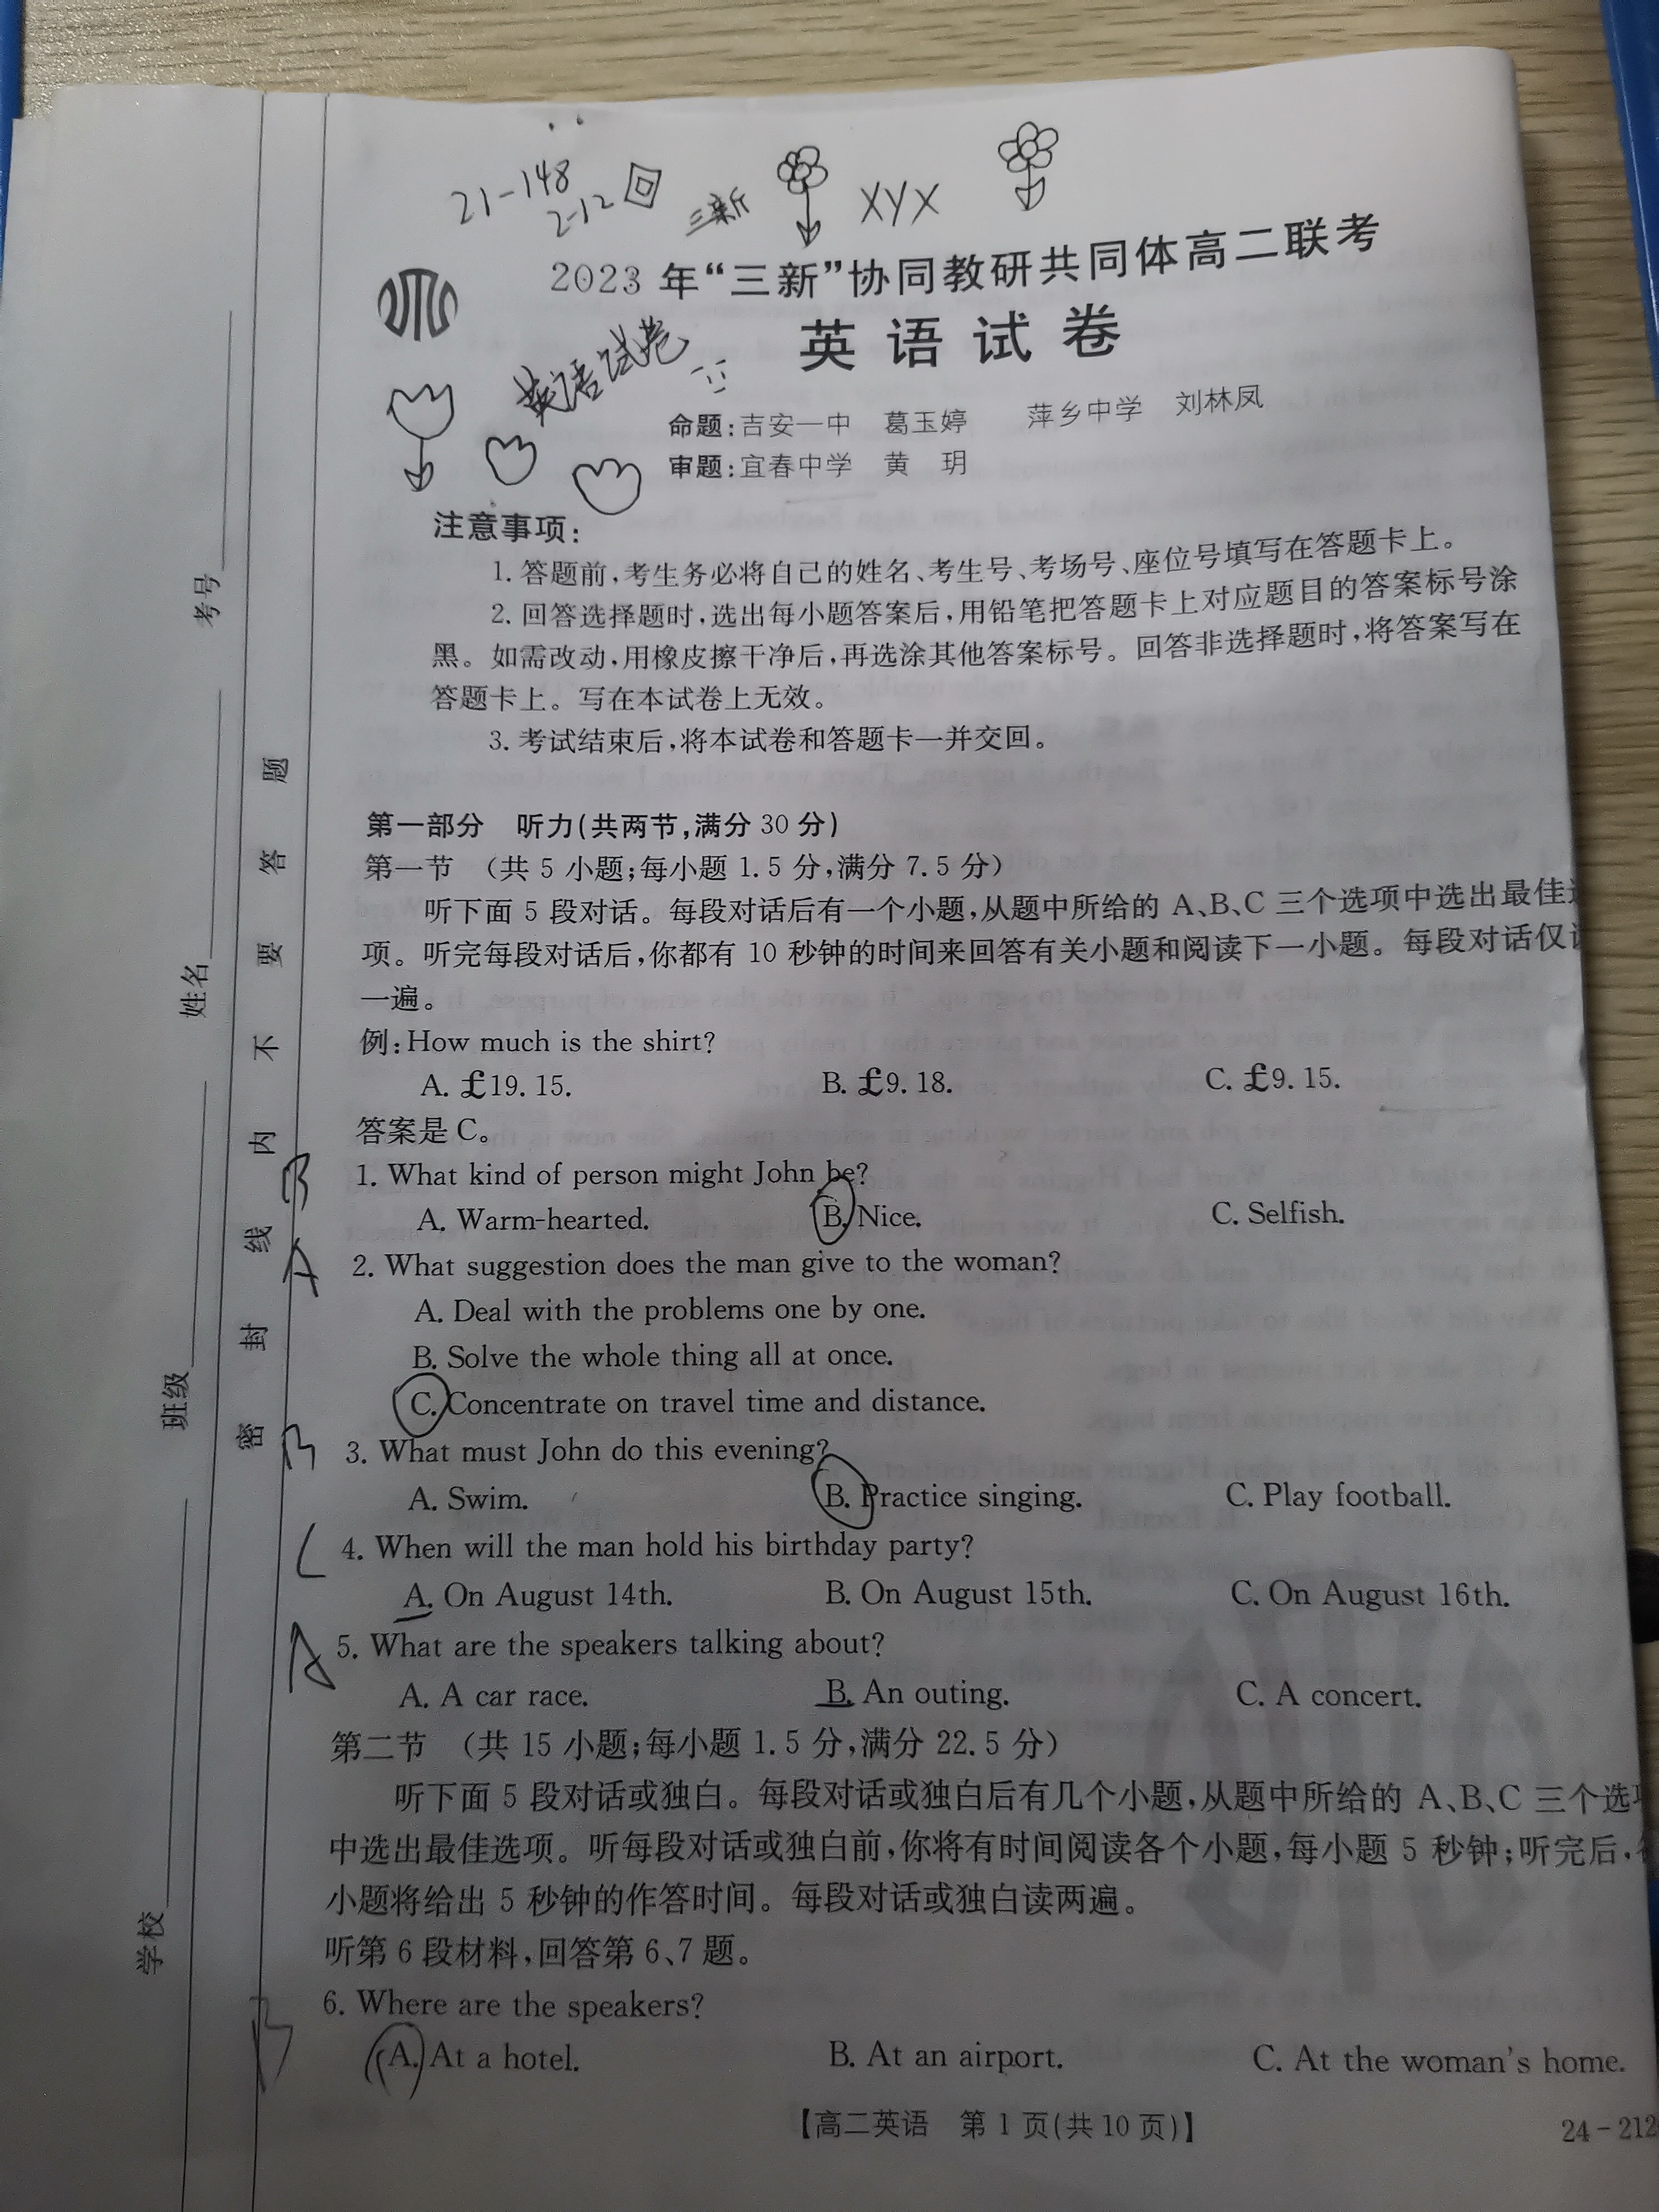 21-148
2-12 回
三新
XYX
2023 年“三新”协同教研共同体高二联考
英语试卷
英语试卷
命题:吉安一中 葛玉婷 萍乡中学 刘林凤
审题:宜春中学 黄 玥
注意事项:
1. 答题前,考生务必将自己的姓名、考生号、考场号、座位号填写在答题卡上。
2. 回答选择题时,选出每小题答案后,用铅笔把答题卡上对应题目的答案标号涂
黑。如需改动,用橡皮擦干净后,再选涂其他答案标号。回答非选择题时,将答案写在
答题卡上。写在本试卷上无效。
3. 考试结束后,将本试卷和答题卡一并交回。
第一部分 听力(共两节,满分 30 分)
第一节 (共 5 小题;每小题 1.5 分,满分 7.5 分)
听下面 5 段对话。每段对话后有一个小题,从题中所给的 A、B、C 三个选项中选出最佳
项。听完每段对话后,你都有 10 秒钟的时间来回答有关小题和阅读下一小题。每段对话仅
一遍。
例:How much is the shirt?
A. £19.15. B. £9.18. C. £9.15.
答案是 C。
B
1. What kind of person might John be?
A. Warm-hearted. B. Nice. C. Selfish.
A
2. What suggestion does the man give to the woman?
A. Deal with the problems one by one.
B. Solve the whole thing all at once.
C. Concentrate on travel time and distance.
B
3. What must John do this evening?
A. Swim. B. Practice singing. C. Play football.
C
4. When will the man hold his birthday party?
A. On August 14th. B. On August 15th. C. On August 16th.
A
5. What are the speakers talking about?
A. A car race. B. An outing. C. A concert.
第二节 (共 15 小题;每小题 1.5 分,满分 22.5 分)
听下面 5 段对话或独白。每段对话或独白后有几个小题,从题中所给的 A、B、C 三个选
中选出最佳选项。听每段对话或独白前,你将有时间阅读各个小题,每小题 5 秒钟;听完后,
小题将给出 5 秒钟的作答时间。每段对话或独白读两遍。
听第 6 段材料,回答第 6、7 题。
B
6. Where are the speakers?
A. At a hotel. B. At an airport. C. At the woman's home.
【高二英语 第 1 页(共 10 页)】
24-212
学校 班级 姓名 考号
密 封 线 内 不 要 答 题